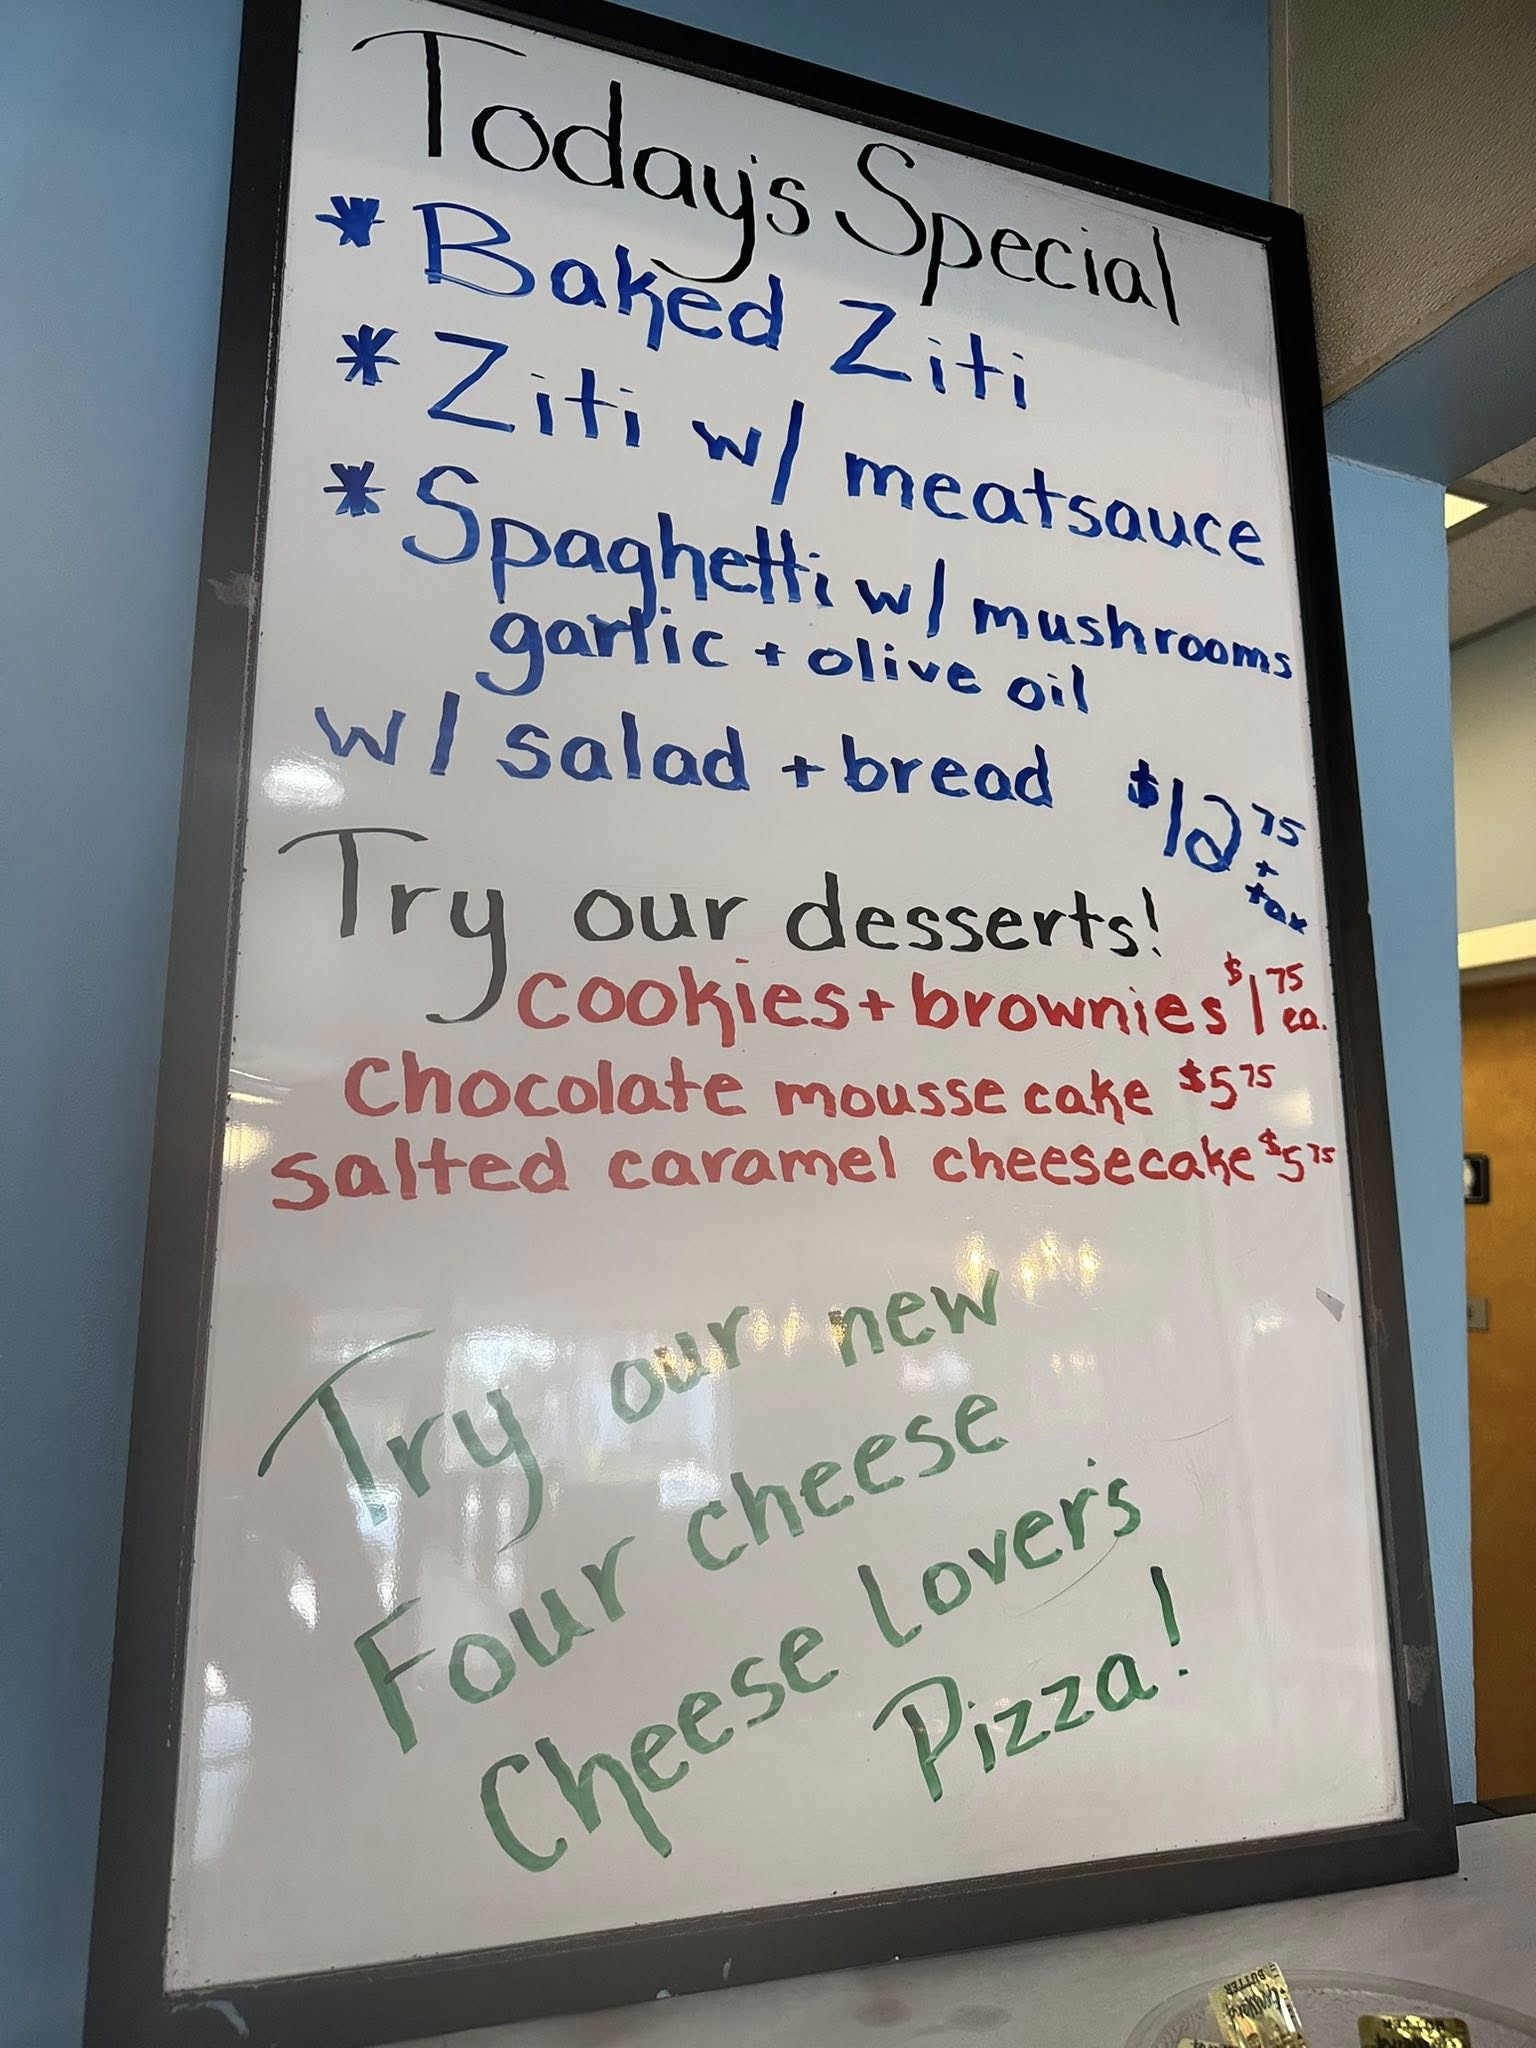 Today's Special
* Baked Ziti
* Ziti w/ meatsauce
* Spaghetti w/ mushrooms
garlic + olive oil
w/ salad + bread $12 75
+
tax
Try our desserts!
cookies + brownies $1 75 ea.
Chocolate mousse cake $5 75
salted caramel cheesecake $5 75
Try our new
Four cheese
Cheese Lover's
Pizza!
BUTTER